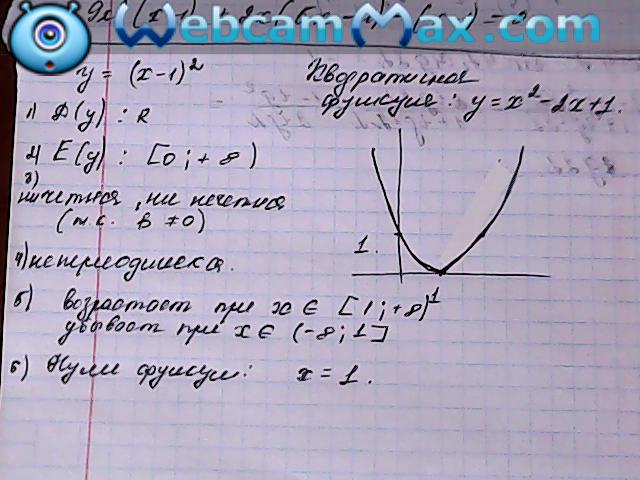 WebcamMax.com
y = (x-1)²
Квадратичная
функция: y = x² - 2x + 1.
1) D(y) : R
2) E(y) : [0 ; + ∞)
3)
ни четная, ни нечетная
(т.к. в ≠ 0)
1.
4) непериодическа.
5) возрастает при x ∈ [1 ; +∞)
убывает при x ∈ (-∞ ; 1]
6) Нули функции: x = 1.